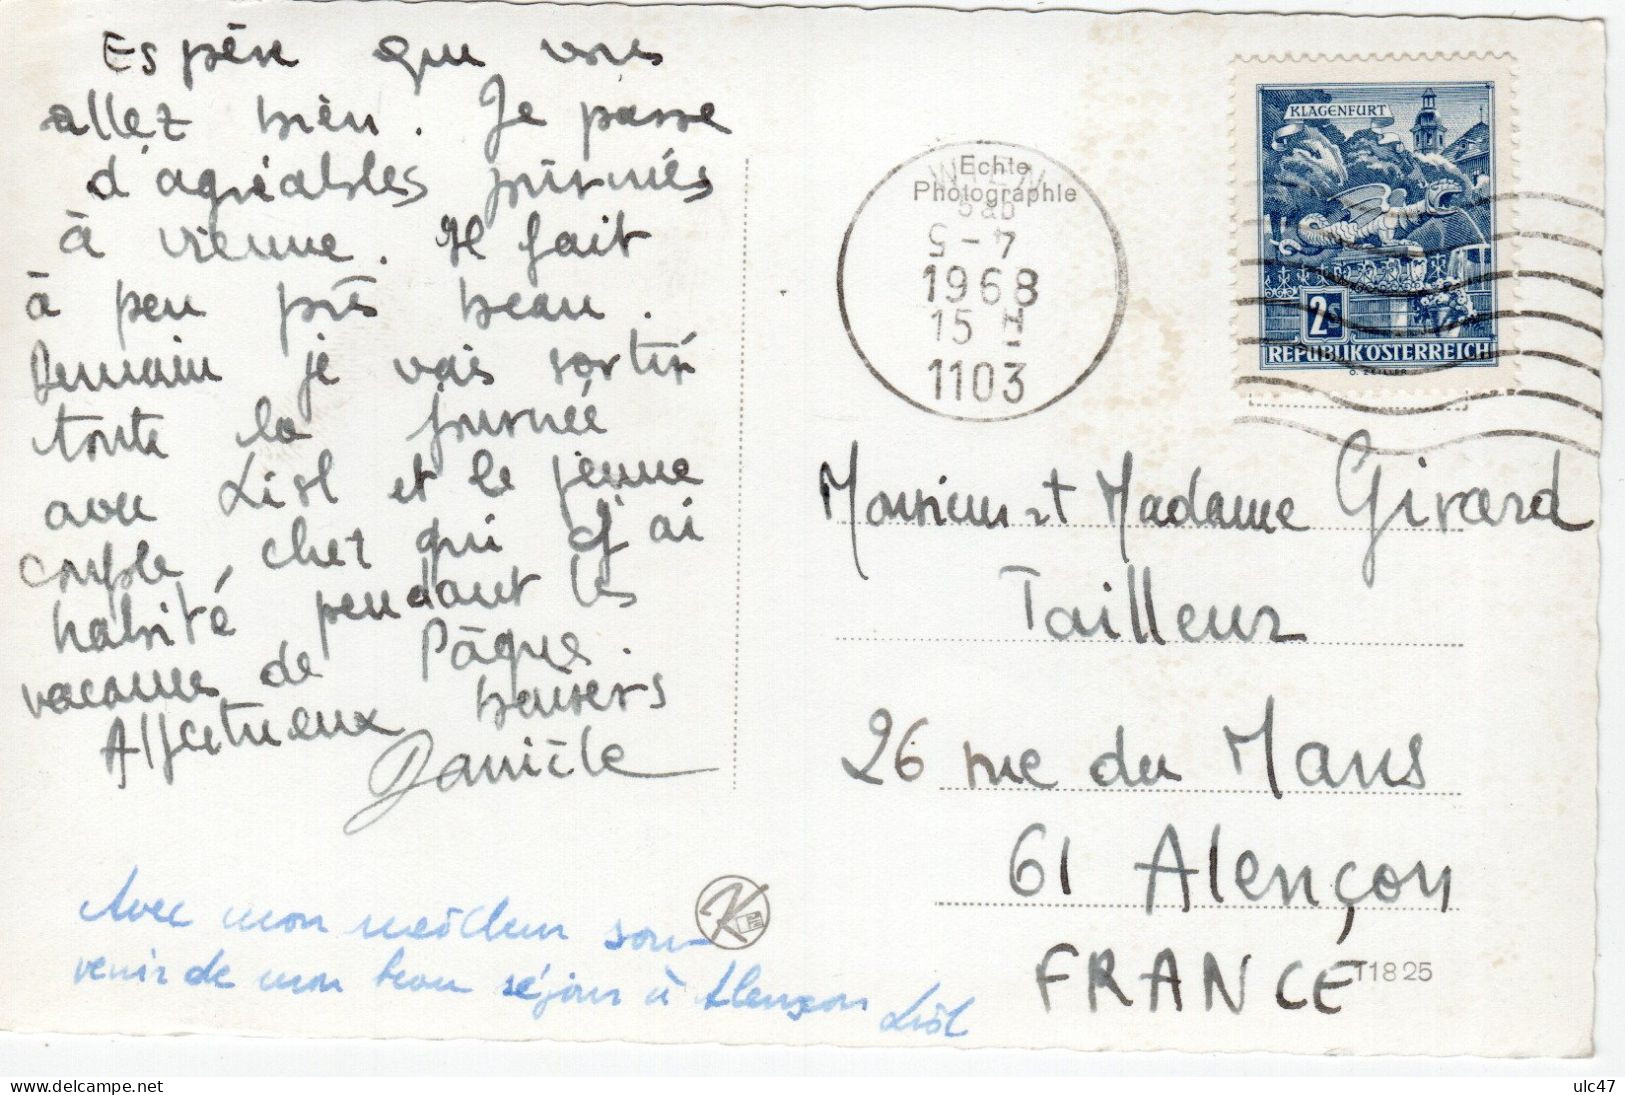 Espère que vous
allez bien. Je passe
d'agréables journées
à vienne. Il fait
à peu près beau.
Demain je vais sortir
toute la journée
avec Lisl et le jeune
couple, chez qui j'ai
habité pendant les
vacances de Pâques.
Affectueux baisers
Danièle
Avec mon meilleur sou-
venir de mon beau séjour à Alençon
Lisl
Echte
Photographie
WIEN
5-7
1968
15
1103
KLAGENFURT
2S
REPUBLIK ÖSTERREICH
O. ZEILLER
Monsieur et Madame Girard
Tailleur
26 rue du Mans
61 Alençon
FRANCE
K
T1825
ulc47